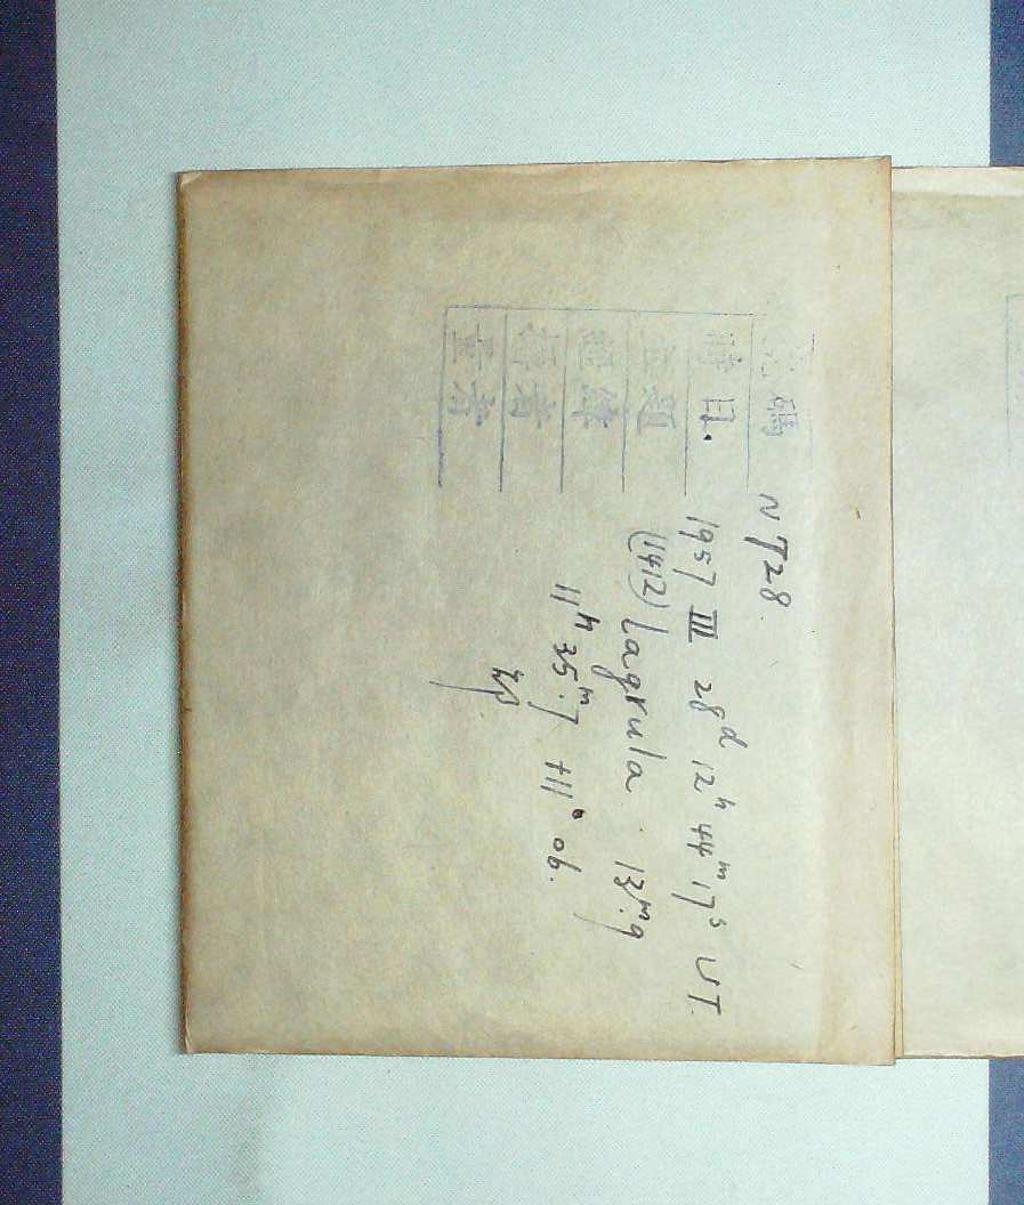 號碼 NT28.
時日. 1957 III 28d 12h 44m 17s UT.
主題 (1412) Lagrula. 13m.9
11h 35m.7 +11° 06.
者
者